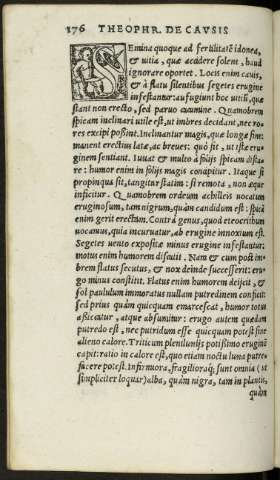 176 THEOPHR. DE CAVSIS
Semina quoque ad fertilitatē idonea,
& uitia, quæ accidere solent, haud
ignorare oportet. Locis enim cauis,
& à flatu silentibus segetes erugine
infestantur: aufugiunt hoc uitiū, quæ
stant non erecto, sed paruo cacumine. Quamobrem
spicam inclinari utile est, ut imbres decidant, nec ro-
res excipi possint. Inclinantur magis, quæ longæ sine
manent erectius latæ, ac breues: quò fit, ut istæ eru-
ginem sentiant. Iuuat & multo à folijs spicam dista-
re: humor enim in folijs magis concipitur. Itaque si
propinqua sit, tangitur statim: si remota, non æque
inficitur. Quamobrem ordeum achilleis uocatum
eruginosum, tam nigrum, quàm candidum est: spicā
enim gerit erectam. Contrà genus, quod eteocrithum
uocamus, quia incuruatur, ab erugine innoxium est.
Segetes uento expositæ minus erugine infestantur:
motus enim humorem discutit. Nam & cum post im-
brem flatus secutus, & nox deinde successerit: eru-
go minus constitit. Flatus enim humorem deijcit, &
sol paululum immoratus nullam putredinem conficit
sed prius quàm quicquam emarcescat, humor totus
afficitur, atque absumitur: erugo autem quædam
putredo est, nec putridum esse quicquam potest sine
alieno calore. Triticum plenilunijs potissimo eruginē
capit: ratio in calore est, quo etiam noctu luna putre-
facere potest. Infirmiora, fragiliora&#42803; sunt omnia (ut
simpliciter loquar) alba, quàm nigra, tam in plantis,
quàm